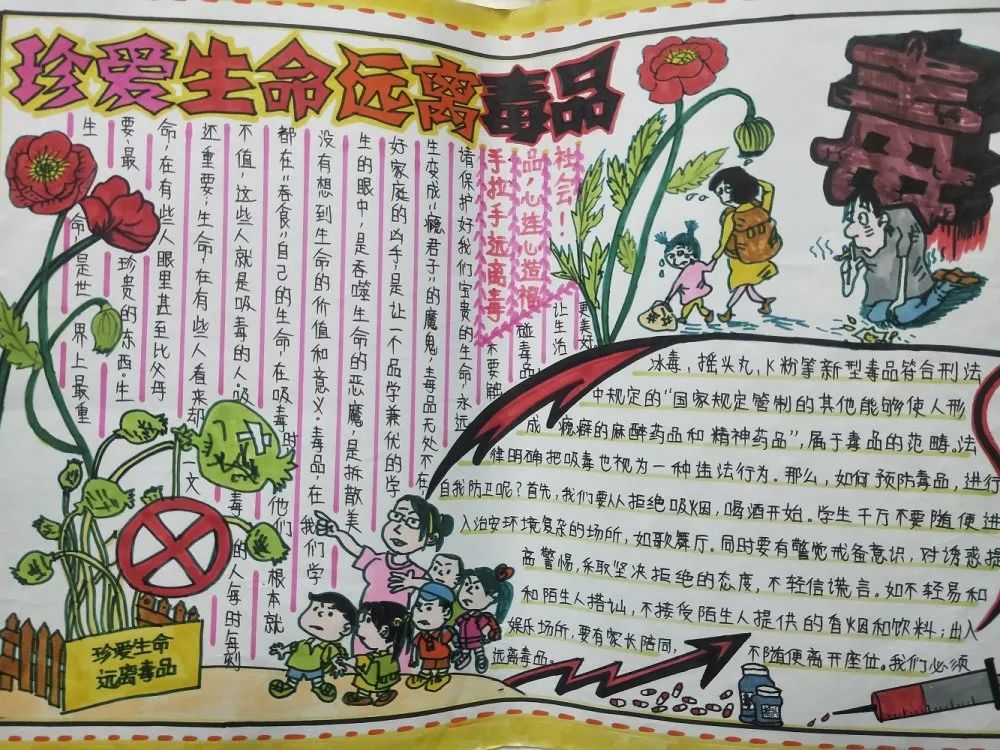 珍爱生命远离毒品
生命是世界上最重
要,最珍贵的东西.生
命,在有些人眼里甚至比父母
还重要,生命,在有些人看来却一文
不值,这些人就是吸毒的人.吸毒的人每时每刻
都在“吞食”自己的生命,在吸毒时他们根本就
没有想到生命的价值和意义.毒品,在我们学
生的眼中,是吞噬生命的恶魔;是拆散美
好家庭的凶手;是让一个品学兼优的学
生变成“瘾君子”的魔鬼,毒品无处不在
请保护好我们宝贵的生命,永远
不要触
碰毒品,
让生活
更美好
手拉手远离毒
品,心连心造福
社会!
冰毒,摇头丸,K粉等新型毒品符合刑法
中规定的“国家规定管制的其他能够使人形
成瘾癖的麻醉药品和精神药品”,属于毒品的范畴.法
律明确把吸毒也视为一种违法行为.那么,如何预防毒品,进行
自我防卫呢?首先,我们要从拒绝吸烟,喝酒开始.学生千万不要随便进
入治安环境复杂的场所,如歌舞厅.同时要有警觉戒备意识,对诱惑提
高警惕,采取坚决拒绝的态度,不轻信谎言.如不轻易和
和陌生人搭讪,不接受陌生人提供的香烟和饮料;出入
娱乐场所,要有家长陪同,不随便离开座位.我们必须
远离毒品.
珍爱生命
远离毒品